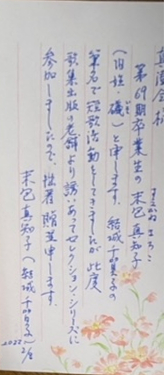 真澄会様
すえかね まちこ
第69期卒業生の末包真知子
(旧姓・礒)と申します。結城千賀子の
筆名で短歌活動をしてきましたが、此度
歌集出版の老舗より誘いあってセレクション・シリーズに
参加しましたので、拙著贈呈申します。
末包真知子(結城千賀子)
2022 2/2